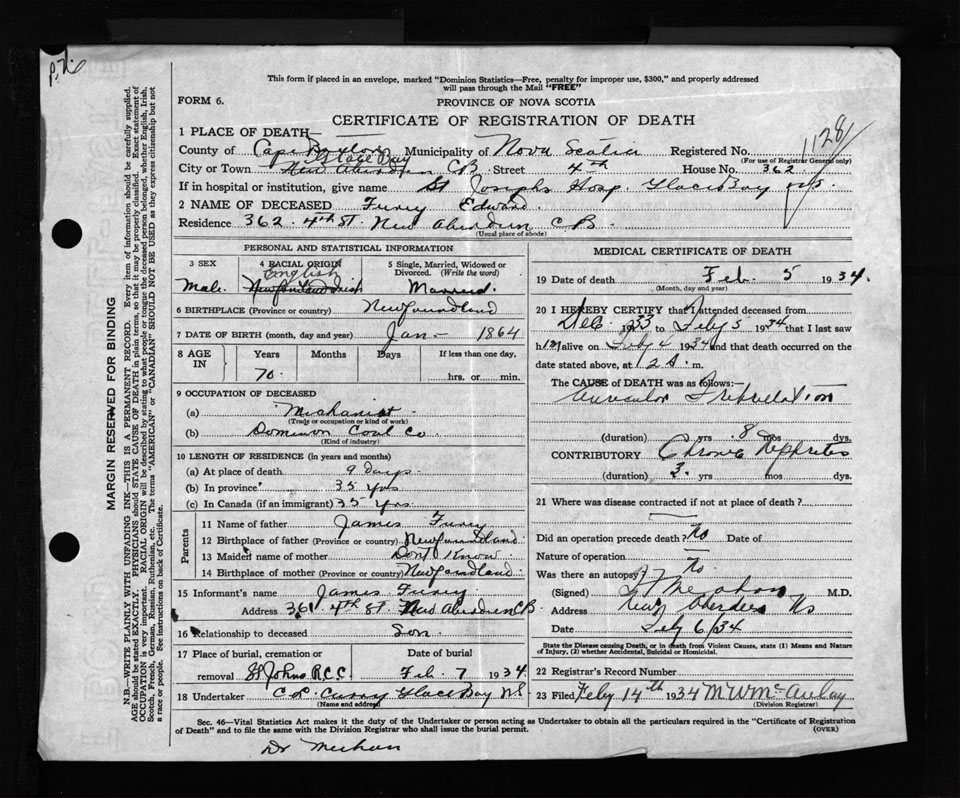 P. 76
This form if placed in an envelope, marked "Dominion Statistics—Free, penalty for improper use, $300," and properly addressed
will pass through the Mail "FREE"
FORM 6.
PROVINCE OF NOVA SCOTIA
CERTIFICATE OF REGISTRATION OF DEATH
1128
1 PLACE OF DEATH—
County of Cape Breton Municipality of Nova Scotia Registered No.
(For use of Registrar General only)
Glace Bay
City or Town New Aberdeen CB Street 4th House No. 362
If in hospital or institution, give name St Josephs Hosp. Glace Bay NS.
2 NAME OF DECEASED Furey Edward.
Residence 362. 4th St. New Aberdeen C.B.
(Usual place of abode)
PERSONAL AND STATISTICAL INFORMATION
3 SEX
Male.
4 RACIAL ORIGIN
English
Newfoundland Irish
5 Single, Married, Widowed or
Divorced. (Write the word)
Married.
6 BIRTHPLACE (Province or country) Newfoundland
7 DATE OF BIRTH (month, day and year) Jan- 1864
8 AGE IN
Years Months Days If less than one day,
70. hrs. or min.
9 OCCUPATION OF DECEASED
(a) Mechanist
(Trade or occupation or kind of work)
(b) Dominion Coal Co.
(Kind of industry)
10 LENGTH OF RESIDENCE (in years and months)
(a) At place of death 9 Days.
(b) In province 35 yrs
(c) In Canada (if an immigrant) 35 yrs.
Parents
11 Name of father James Furey
12 Birthplace of father (Province or country) Newfoundland
13 Maiden name of mother Dont Know
14 Birthplace of mother (Province or country) Newfoundland.
15 Informant's name James Furey
Address 361 4th St. New Aberdeen CB
16 Relationship to deceased Son.
17 Place of burial, cremation or Date of burial
removal St Johns R.C.C. Feb. 7 1934
18 Undertaker C.P. Curry Glace Bay NS
(Name and address)
MEDICAL CERTIFICATE OF DEATH
19 Date of death Feb. 5 1934.
(Month, day and year)
20 I HEREBY CERTIFY that I attended deceased from
Dec. 1933 to Feby 5 1934 that I last saw
him alive on Feby 4 1934 and that death occurred on the
date stated above, at 12 A. m.
The CAUSE of DEATH was as follows:—
Auricular Fibrillation
(duration) yrs. 8 mos dys.
CONTRIBUTORY Chronic Nephritis
(duration) 3. yrs mos dys.
21 Where was disease contracted if not at place of death?
Did an operation precede death? No Date of
Nature of operation
Was there an autopsy? No
(Signed) M.D.
Address New Aberdeen NS
Date Feby 6/34
State the Disease causing Death, or in death from Violent Causes, state (1) Means and Nature
of Injury, (2) whether Accidental, Suicidal or Homicidal.
22 Registrar's Record Number
23 Filed Feby 14th 1934 M W McAulay
(Division Registrar)
Sec. 46—Vital Statistics Act makes it the duty of the Undertaker or person acting as Undertaker to obtain all the particulars required in the "Certificate of Registration
of Death" and to file the same with the Division Registrar who shall issue the burial permit.
(OVER)
Dr Meehan
MARGIN RESERVED FOR BINDING
N.B.—WRITE PLAINLY WITH UNFADING INK—THIS IS A PERMANENT RECORD. Every item of information should be carefully supplied.
AGE should be stated EXACTLY. PHYSICIANS should STATE CAUSE OF DEATH in plain terms, so that it may be properly classified. Exact statement of
OCCUPATION is very important. RACIAL ORIGIN will be described by stating to what people or tongue the deceased person belonged, whether English, Irish,
Scotch, French, German, Russian, Ruthenian, etc. The terms "AMERICAN" or "CANADIAN" SHOULD NOT BE USED as they express citizenship but not
a race or people. See instructions on back of Certificate.